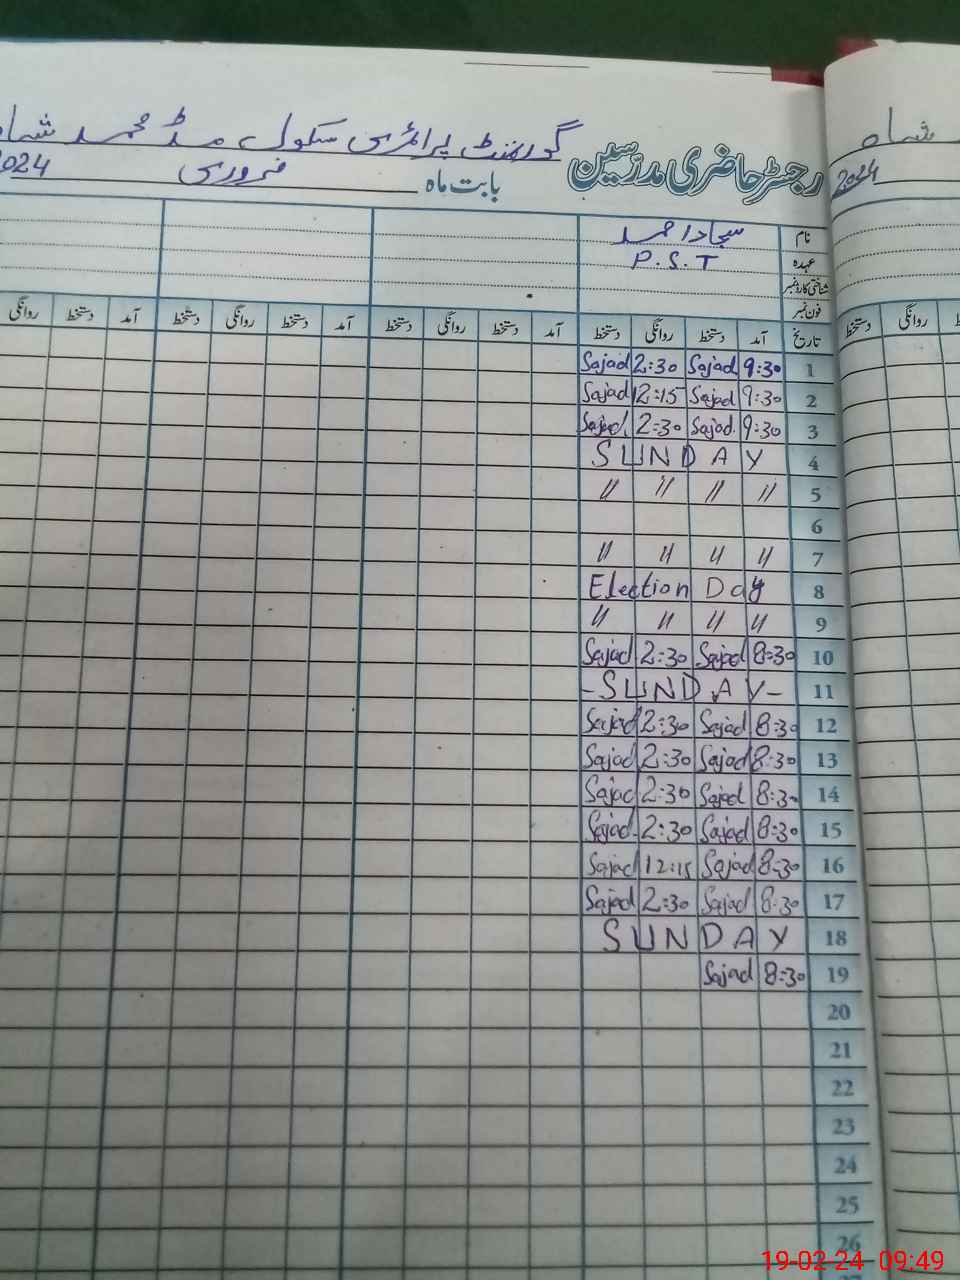 گورنمنٹ پرائمری سکول مڈ محمد شاہ
رجسٹر حاضری مدرسین
بابت ماہ فروری 2024
شاہ
2024
نام سجاد احمد
عہدہ P.S.T
شناختی کارڈ نمبر
فون نمبر
تاریخ آمد دستخط روانگی دستخط آمد دستخط روانگی دستخط آمد دستخط روانگی دستخط آمد دستخط روانگی
روانگی دستخط
Sajad 2:30 Sajad 9:30 1
Sajad 12:15 Sajad 9:30 2
Sajad 2:30 Sajad 9:30 3
SUNDAY 4
〃 〃 〃 〃 5
6
〃 〃 〃 〃 7
Election Day 8
〃 〃 〃 〃 9
Sajad 2:30 Sajad 8:30 10
-SUNDAY- 11
Sajad 2:30 Sajad 8:30 12
Sajad 2:30 Sajad 8:30 13
Sajad 2:30 Sajad 8:30 14
Sajad 2:30 Sajad 8:30 15
Sajad 12:15 Sajad 8:30 16
Sajad 2:30 Sajad 8:30 17
SUNDAY 18
Sajad 8:30 19
20
21
22
23
24
25
26
19-02-24 09:49